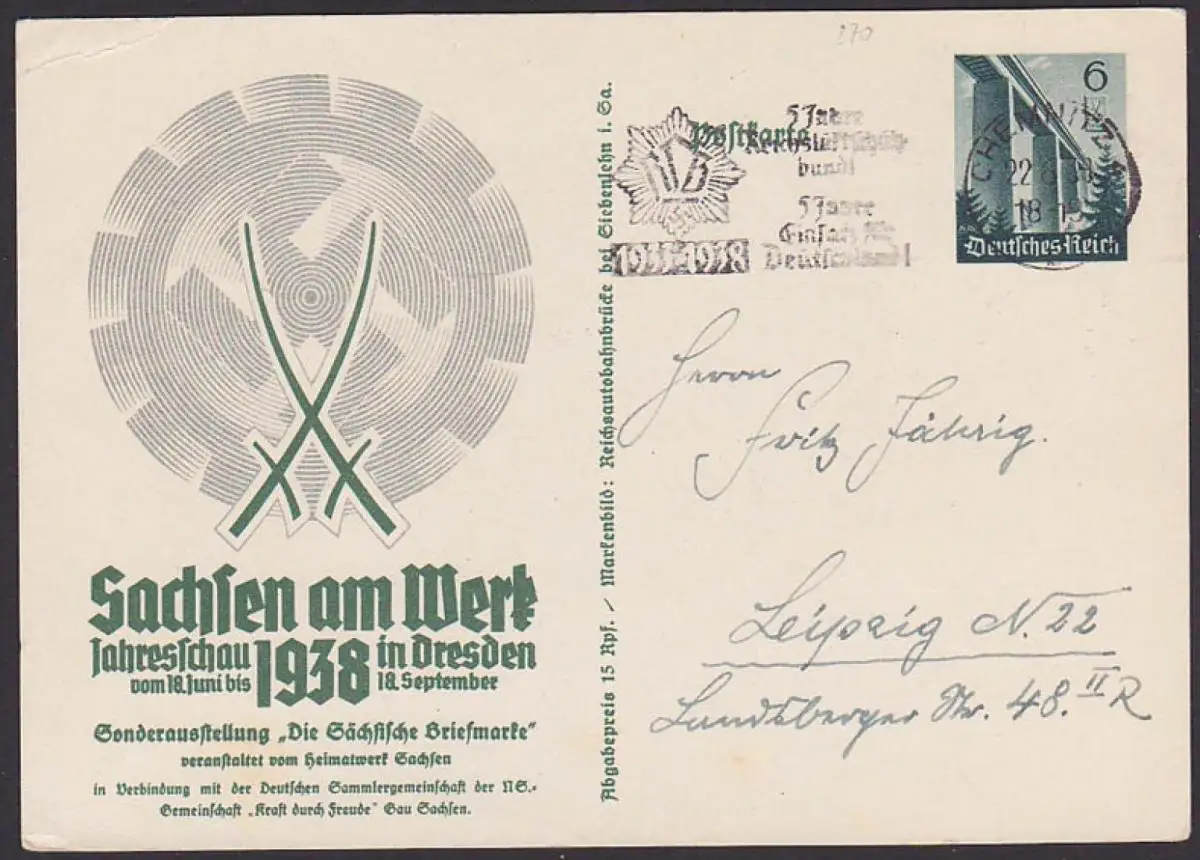 270
Sachsen am Werk
Jahresschau 1938 in Dresden
vom 18. Juni bis 18. September
Sonderausstellung „Die Sächsische Briefmarke“
veranstaltet vom Heimatwerk Sachsen
in Verbindung mit der Deutschen Sammlergemeinschaft der NS.-
Gemeinschaft „Kraft durch Freude“ Gau Sachsen.
Abgabepreis 15 Rpf. / Markenbild: Reichsautobahnbrücke bei Siebenlehn i. Sa.
Postkarte
5 Jahre
Reichsluftschutz-
bund!
5 Jahre
Einsatz für
Deutschland!
RLB
1933-1938
6
Deutsches Reich
CHEMNITZ
22
18
Herrn
Fritz Jährig.
Leipzig N. 22
Landsberger Str. 48. II R